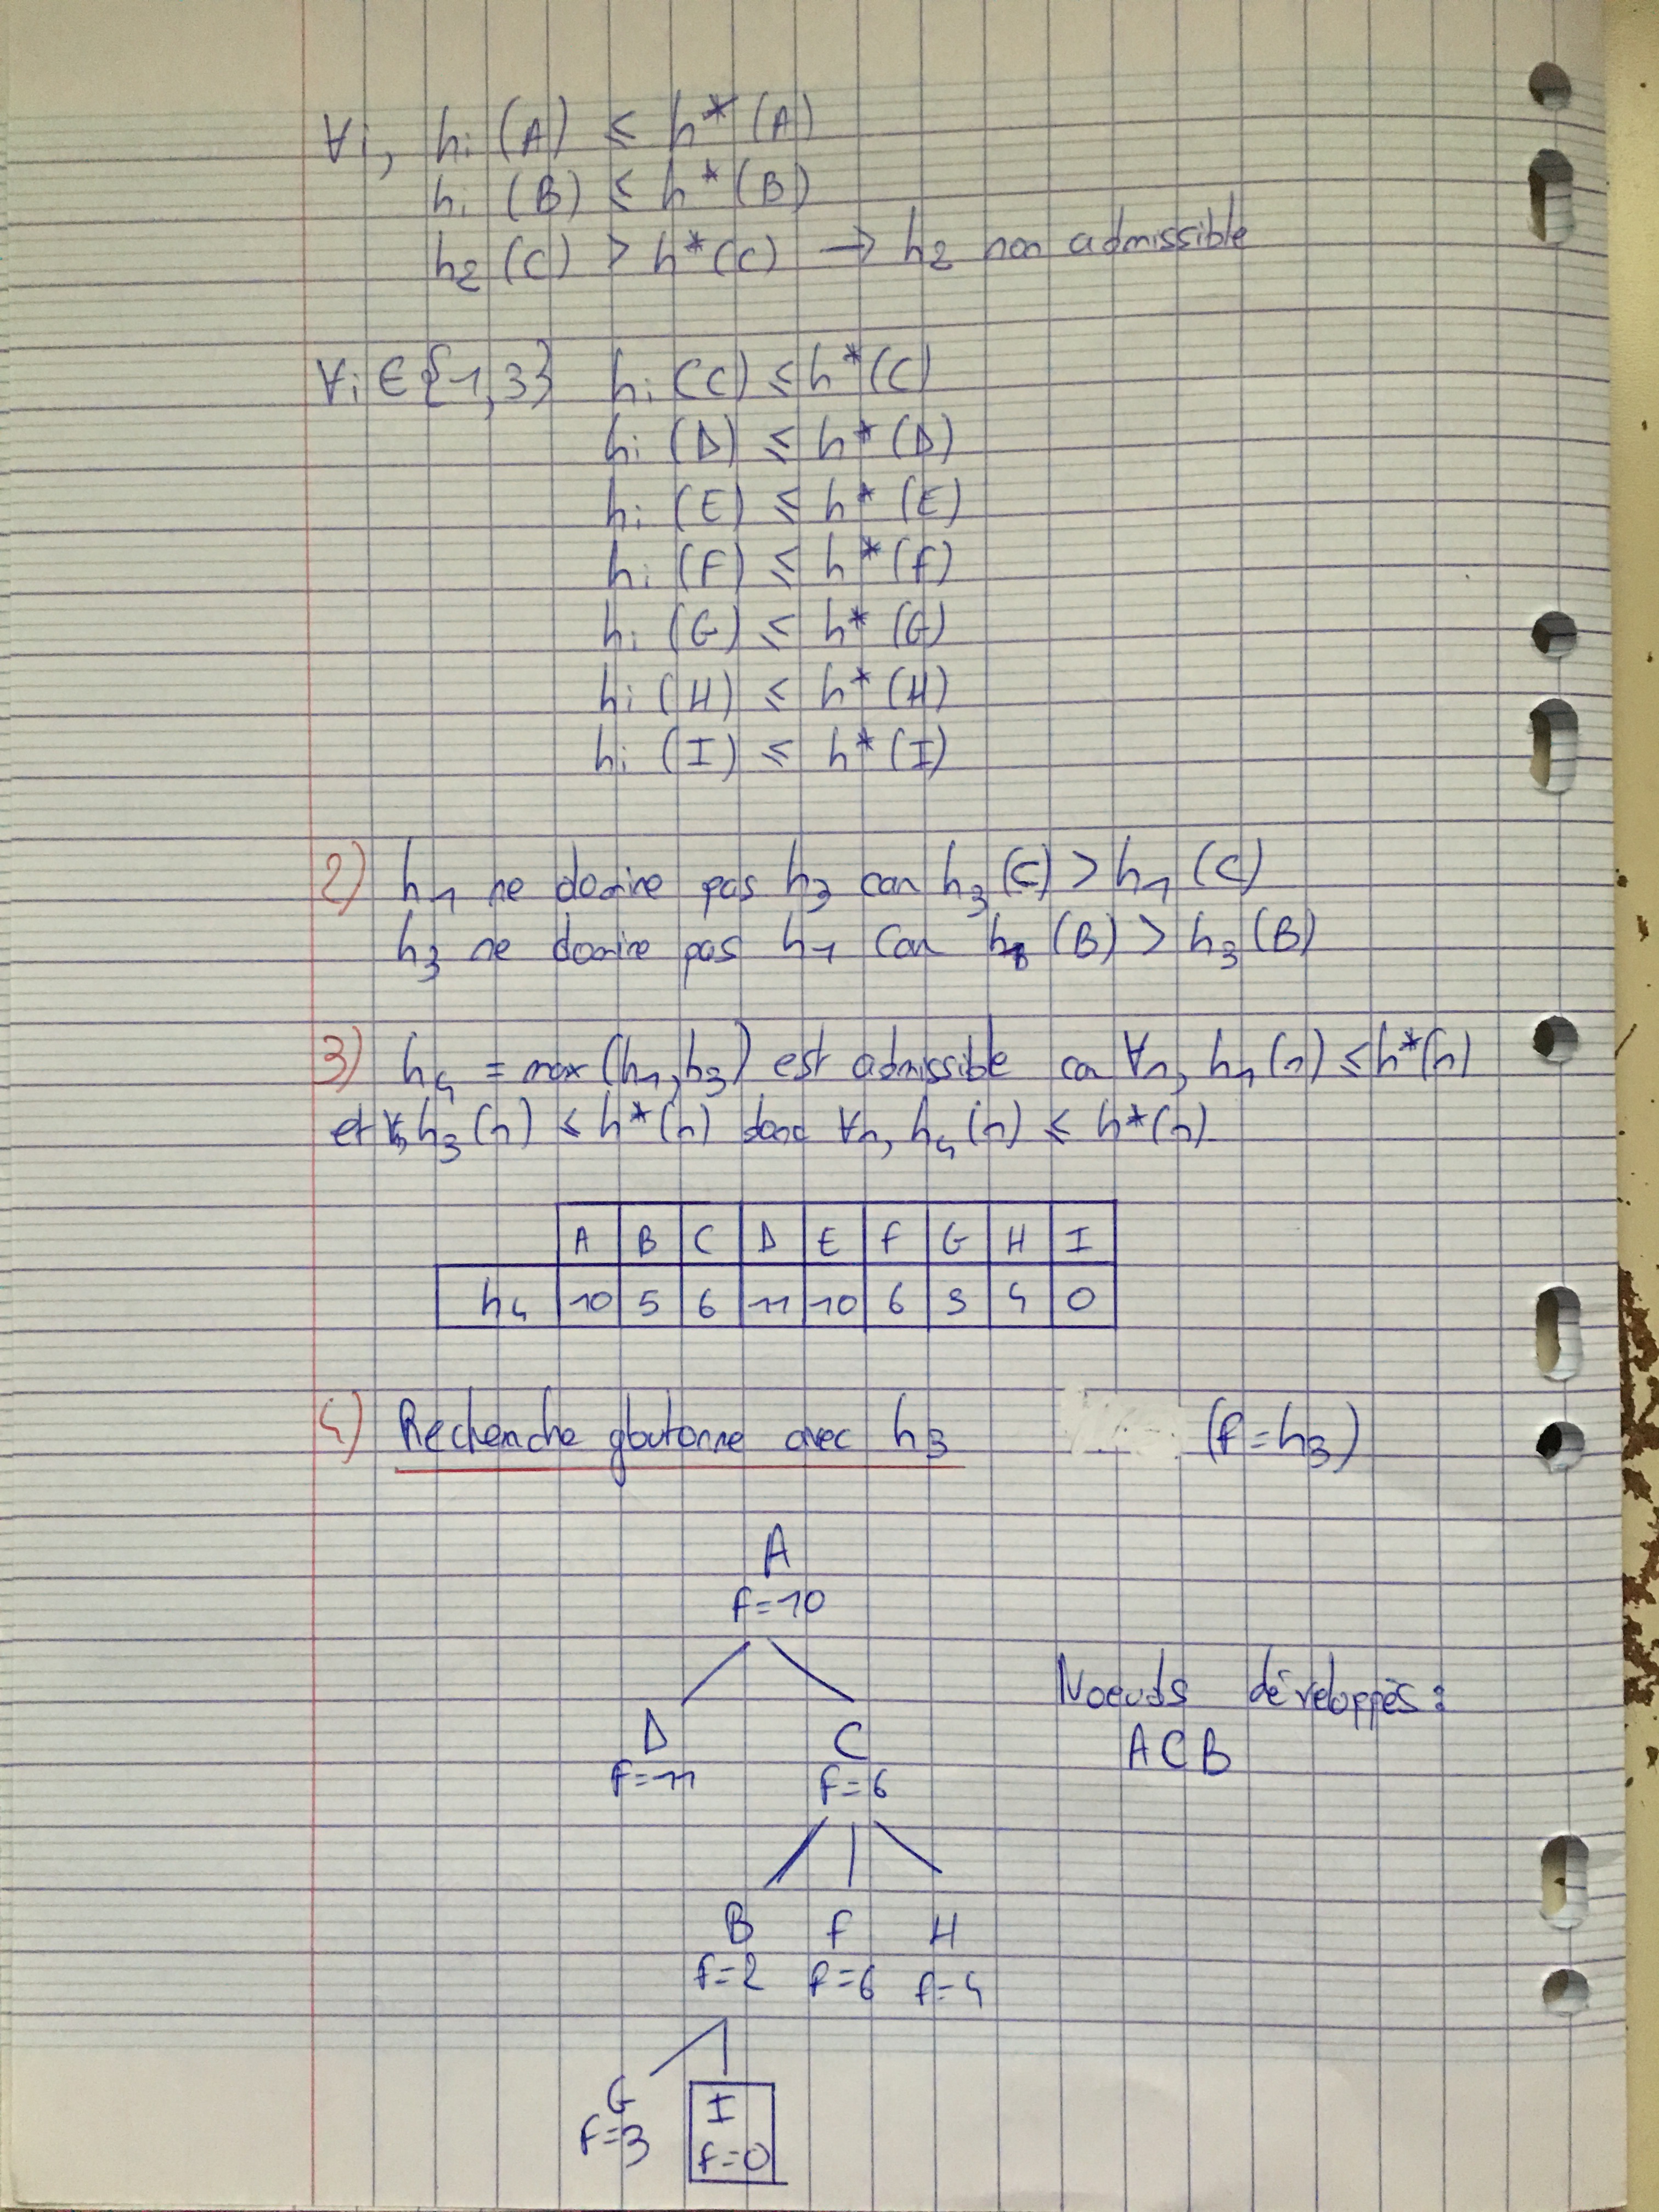 ∀i, hi (A) ≤ h* (A)
hi (B) ≤ h* (B)
h2 (C) > h* (C) → h2 non admissible
∀i ∈ {1,3} hi (C) ≤ h* (C)
hi (D) ≤ h* (D)
hi (E) ≤ h* (E)
hi (F) ≤ h* (f)
hi (G) ≤ h* (G)
hi (H) ≤ h* (H)
hi (I) ≤ h* (I)
2) h1 ne domine pas h3 car h3 (C) > h1 (C)
h3 ne domine pas h1 car h1 (B) > h3 (B)
3) h4 = max (h1, h3) est admissible car ∀n, h1 (n) ≤ h* (n)
et ∀n, h3 (n) ≤ h* (n) donc ∀n, h4 (n) ≤ h* (n)
A B C D E F G H I
h4 10 5 6 11 10 6 3 4 0
4) Recherche gloutonne avec h3 (f = h3)
A
f=10
Noeuds développés :
D C
A C B
f=11 f=6
B F H
f=2 f=6 f=4
G I
f=3 f=0